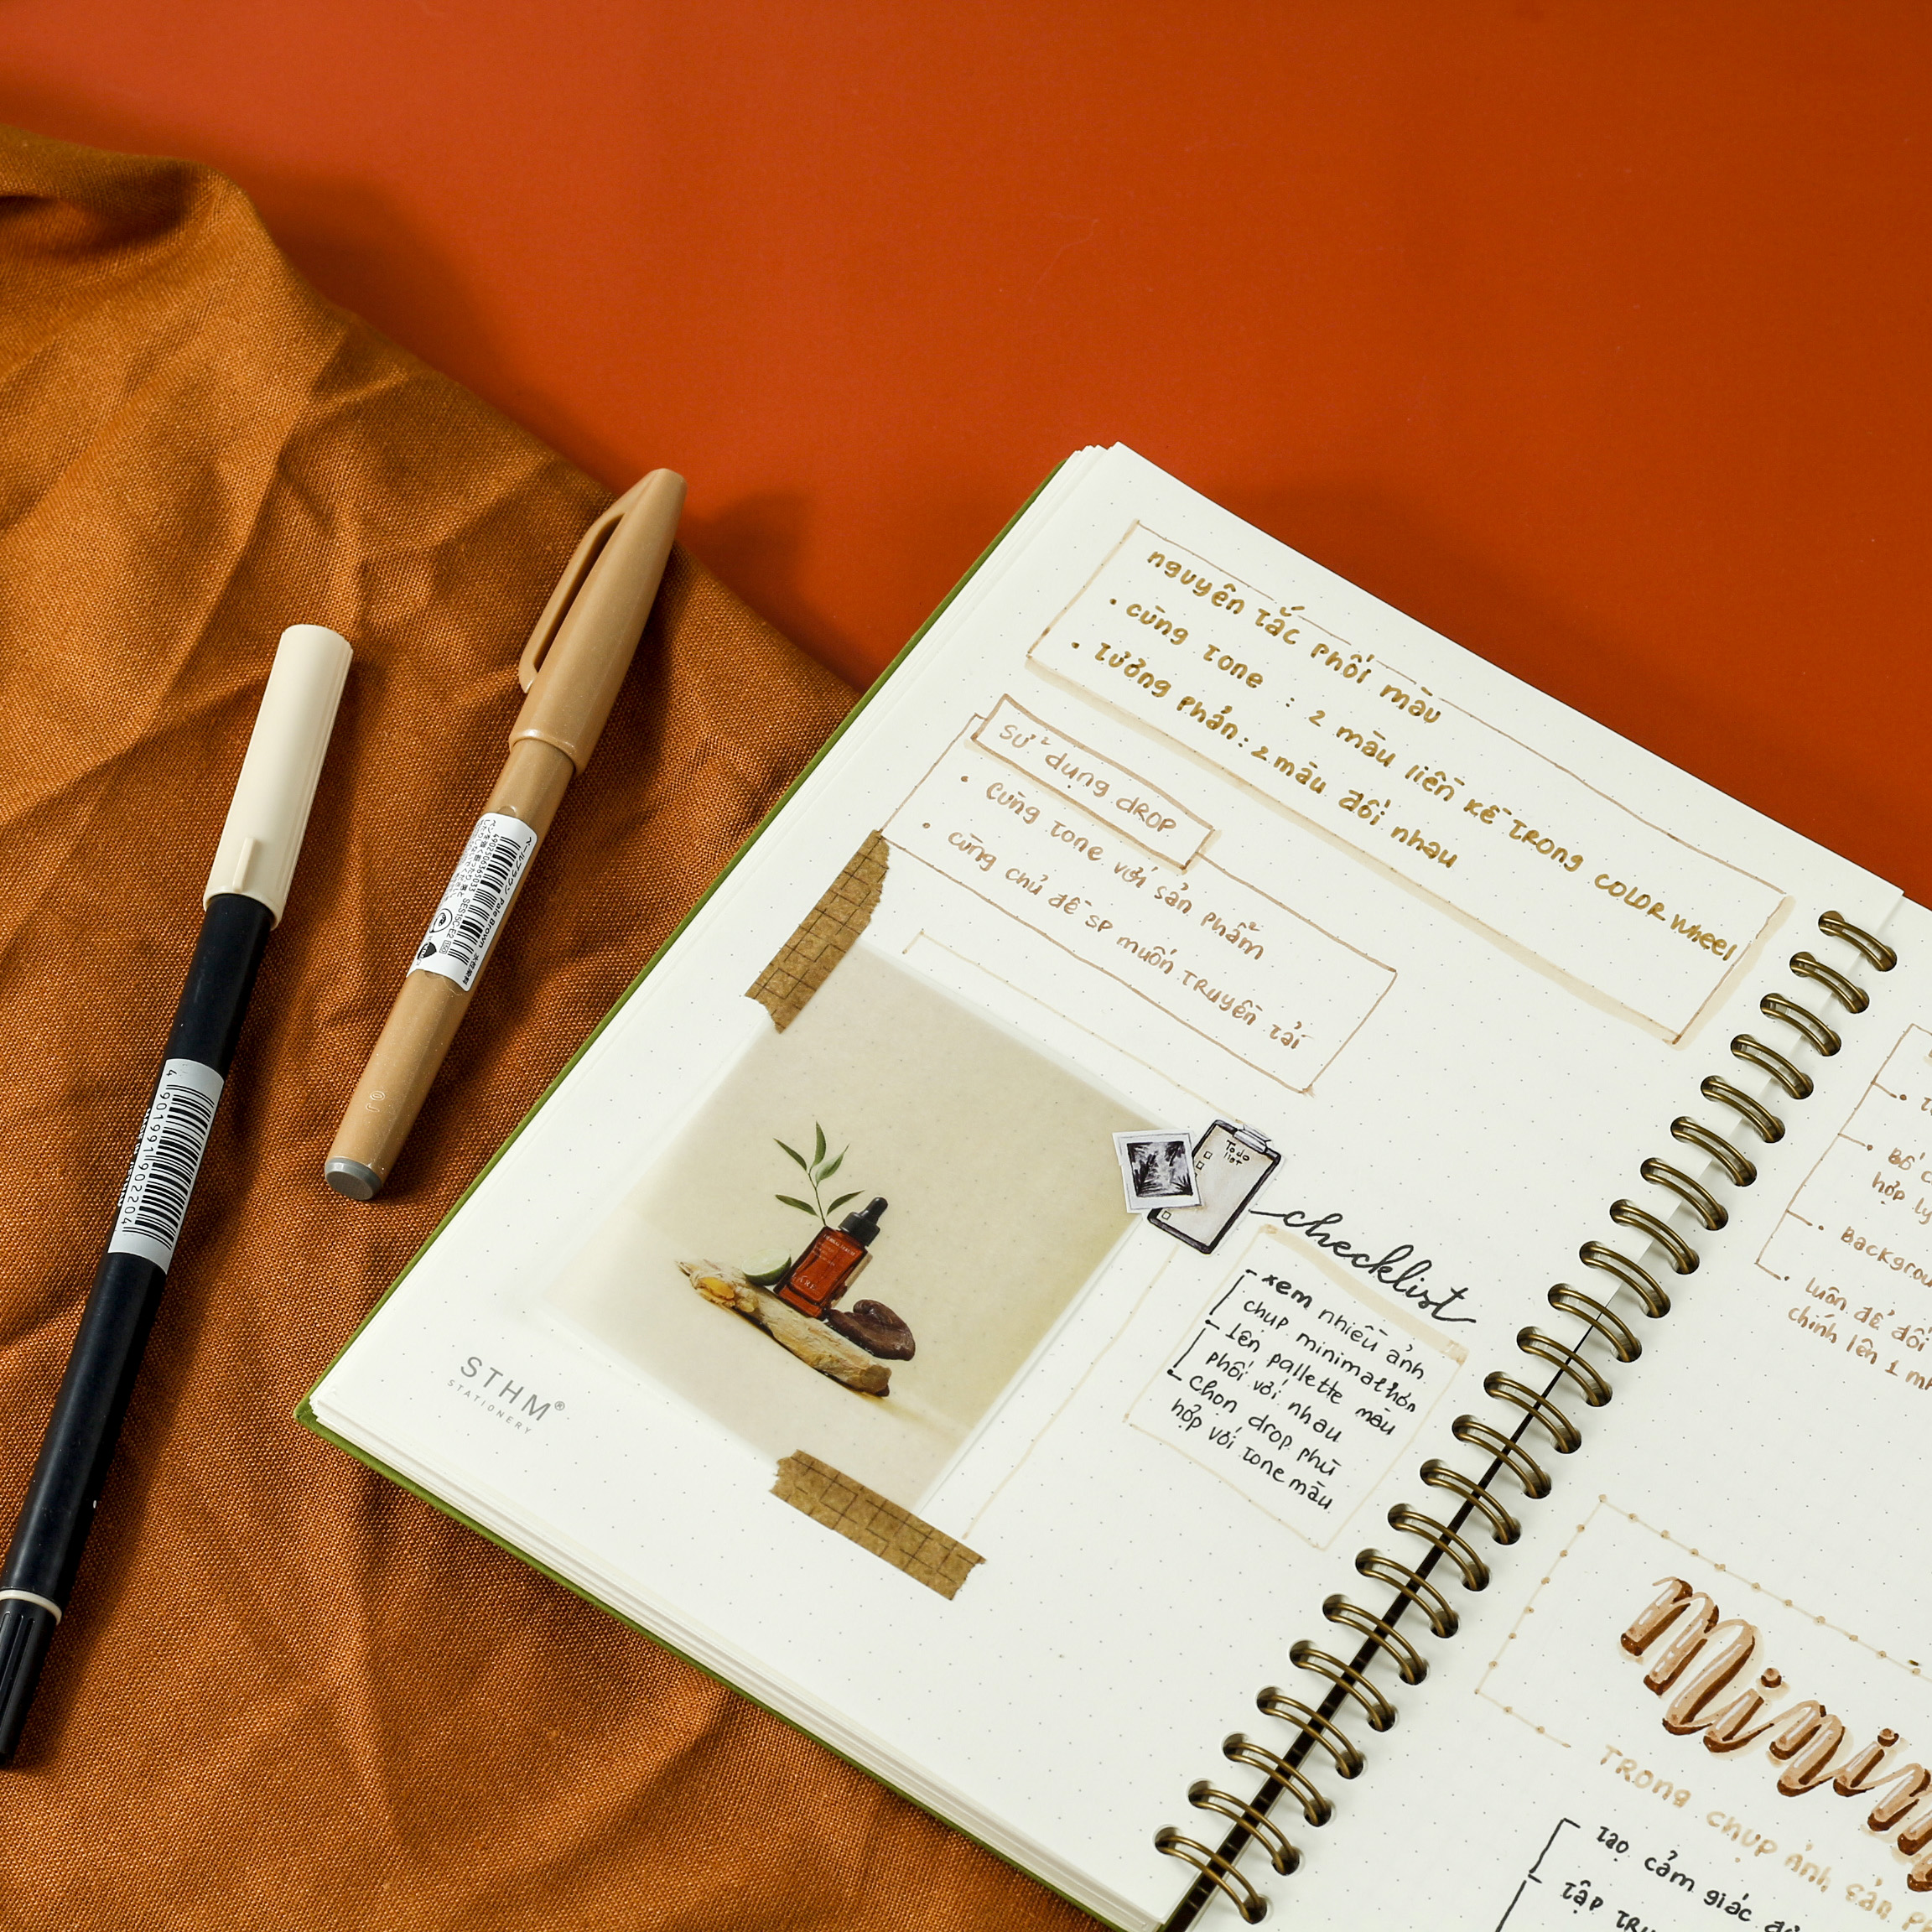 nguyên tắc phối màu
• cùng tone : 2 màu liền kề trong color wheel
• tương phản : 2 màu đối nhau
Sử dụng drop
• cùng tone với sản phẩm
• cùng chủ đề sp muốn truyền tải
To do
list
checklist
xem nhiều ảnh
chụp minimal hơn
lên pallette màu
phối với nhau
chọn drop phù
hợp với tone màu
STHM®
STATIONERY
hợp lý
• Backgrou
• luôn để đối
chính lên 1
Minim
Trong chụp ảnh sản p
tạo cảm giác
tập tru
Pale Brown
SES15C-E2
4902506365033
4 901991 902204